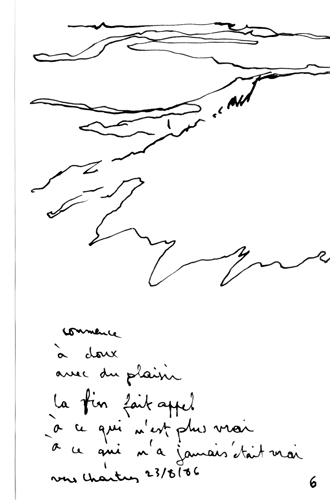 commence
à doux
avec du plaisir
la fin fait appel
à ce qui n'est plus vrai
à ce qui n'a jamais était vrai
vers Chartres 23/8/86
6